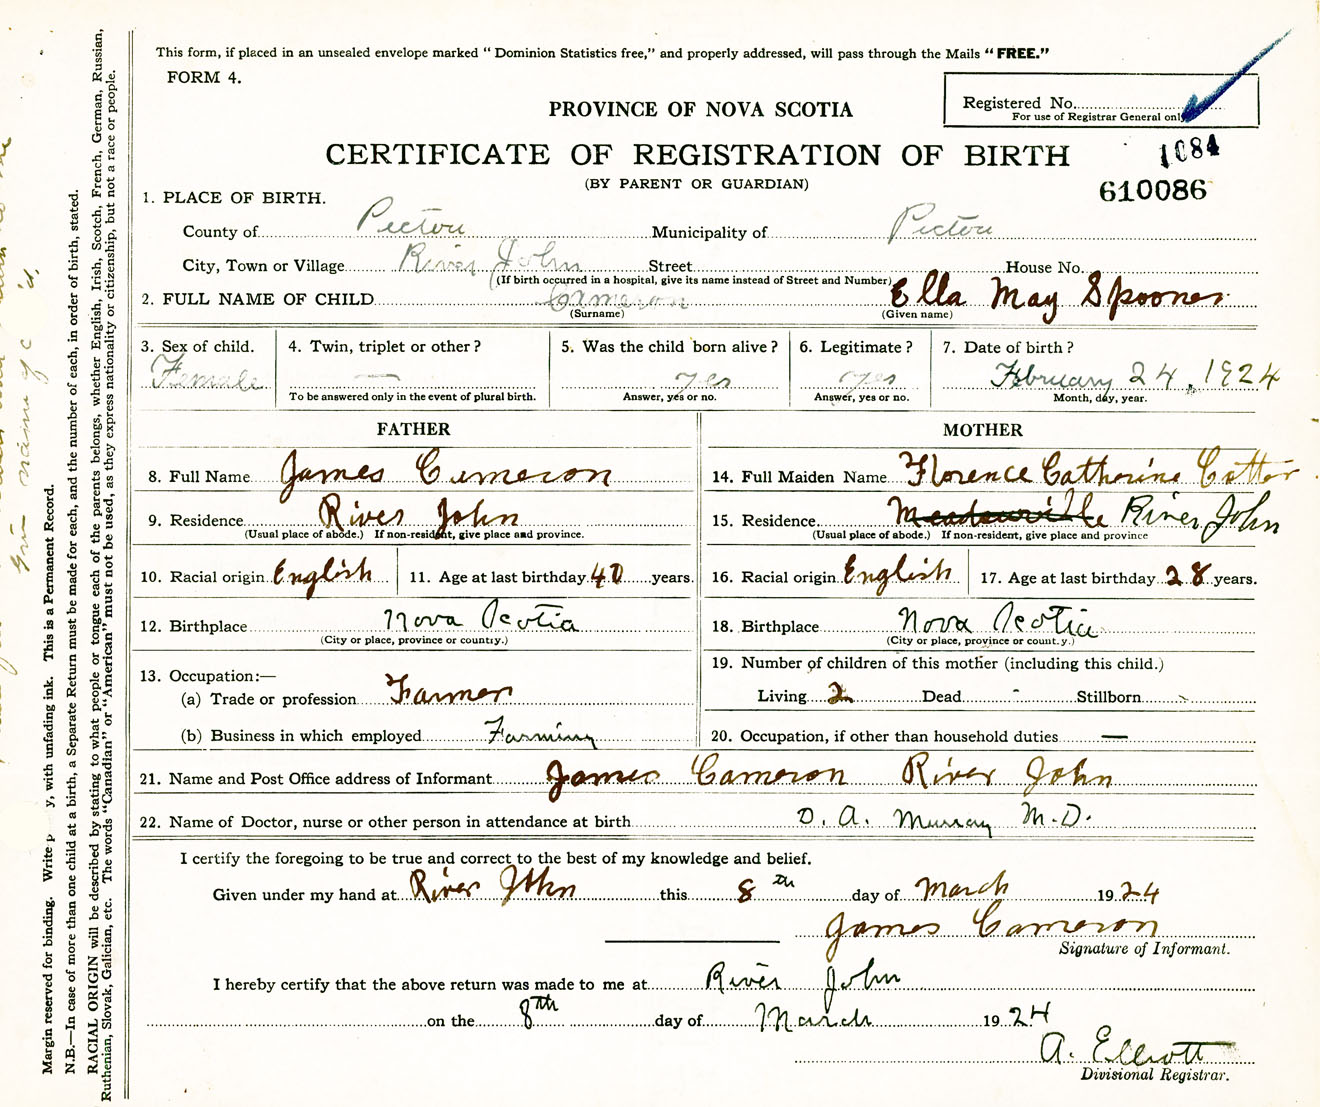 This form, if placed in an unsealed envelope marked “ Dominion Statistics free,” and properly addressed, will pass through the Mails “ FREE.”
FORM 4.
Registered No.
For use of Registrar General only
PROVINCE OF NOVA SCOTIA
CERTIFICATE OF REGISTRATION OF BIRTH
1084
(BY PARENT OR GUARDIAN)
610086
1. PLACE OF BIRTH.
County of Pictou Municipality of Pictou
City, Town or Village River John Street House No.
(If birth occurred in a hospital, give its name instead of Street and Number)
2. FULL NAME OF CHILD Cameron Ella May Spooner
(Surname) (Given name)
3. Sex of child. 4. Twin, triplet or other? 5. Was the child born alive? 6. Legitimate? 7. Date of birth?
Female — yes yes February 24, 1924
To be answered only in the event of plural birth. Answer, yes or no. Answer, yes or no. Month, day, year.
FATHER MOTHER
8. Full Name James Cameron 14. Full Maiden Name Florence Catherine
9. Residence River John 15. Residence Meadowville River John
(Usual place of abode.) If non-resident, give place and province. (Usual place of abode.) If non-resident, give place and province
10. Racial origin English 11. Age at last birthday 40 years. 16. Racial origin English 17. Age at last birthday 28 years.
12. Birthplace Nova Scotia 18. Birthplace Nova Scotia
(City or place, province or country.) (City or place, province or country.)
13. Occupation:— 19. Number of children of this mother (including this child.)
(a) Trade or profession Farmer Living 2 Dead - Stillborn -
(b) Business in which employed Farming 20. Occupation, if other than household duties —
21. Name and Post Office address of Informant James Cameron River John
22. Name of Doctor, nurse or other person in attendance at birth D. A. Murray M.D.
I certify the foregoing to be true and correct to the best of my knowledge and belief.
Given under my hand at River John this 8th day of March 1924
James Cameron
Signature of Informant.
I hereby certify that the above return was made to me at River John
on the 8th day of March 1924
A. Elliott
Divisional Registrar.
Margin reserved for binding. Write p y, with unfading ink. This is a Permanent Record.
N.B.—In case of more than one child at a birth, a Separate Return must be made for each, and the number of each, in order of birth, stated.
RACIAL ORIGIN will be described by stating to what people or tongue each of the parents belongs, whether English, Irish, Scotch, French, German, Russian,
Ruthenian, Slovak, Galician, etc. The words “Canadian” or “American” must not be used, as they express nationality or citizenship, but not a race or people.